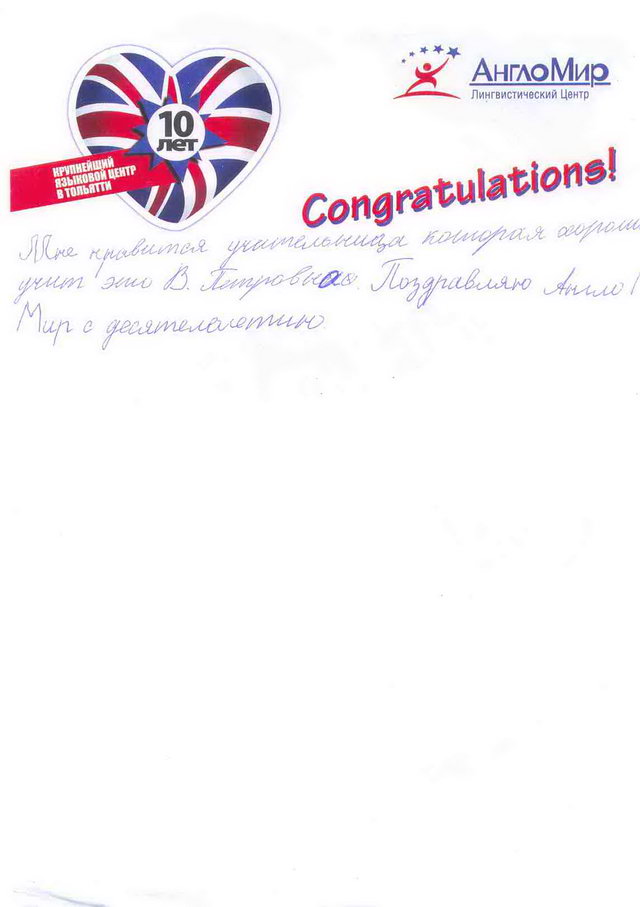 АнглоМир
Лингвистический Центр
10
лет
КРУПНЕЙШИЙ
ЯЗЫКОВОЙ ЦЕНТР
В ТОЛЬЯТТИ
Congratulations!
Мне нравится учительница которая хорошо
учит это В. Петровна. Поздравляю Англо
Мир с десятелолетию.